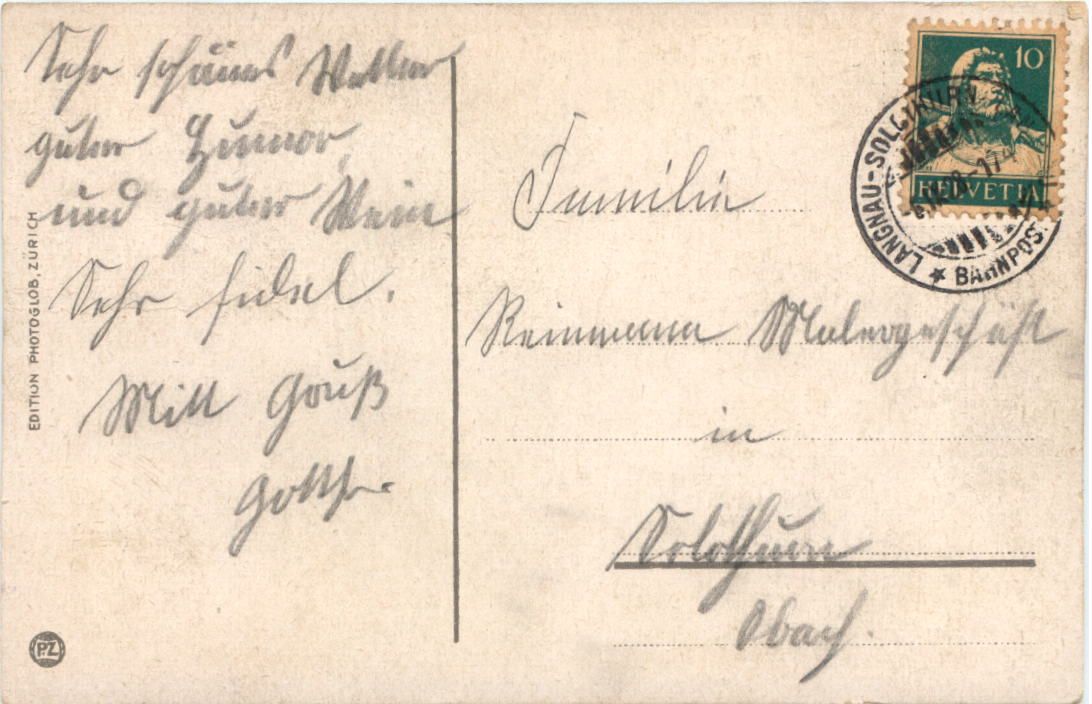 Sehr schönes Wetter
guter Humor,
und guter Wein
Sehr fidel.
Mitt Gruß
Gotth.
EDITION PHOTOGLOB, ZÜRICH
PZ
10
HELVETIA
LANGNAU-SOLOTHURN
★ BAHNPOST
Familie
Reinmann Malergeschäft
in
Solothurn
Obach.